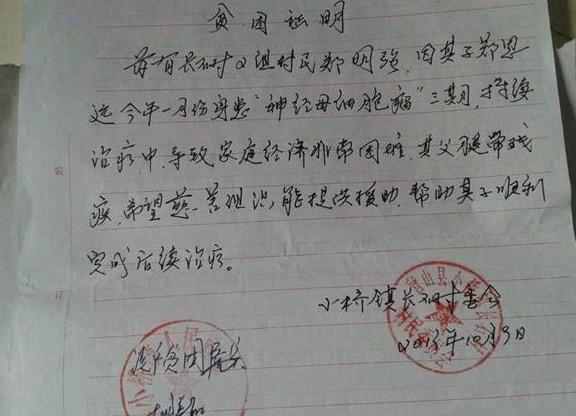 贫困证明
兹有长石村2组村民郑明强，因其子郑恩
远今年一月份身患“神经母细胞瘤”三期，持续
治疗中，导致家庭经济非常困难，其父腿带残
疾，希望慈善组织，能提供援助，帮助其子顺利
完成后续治疗。
小桥镇长石村委会
2013年10月9日
贫困属实